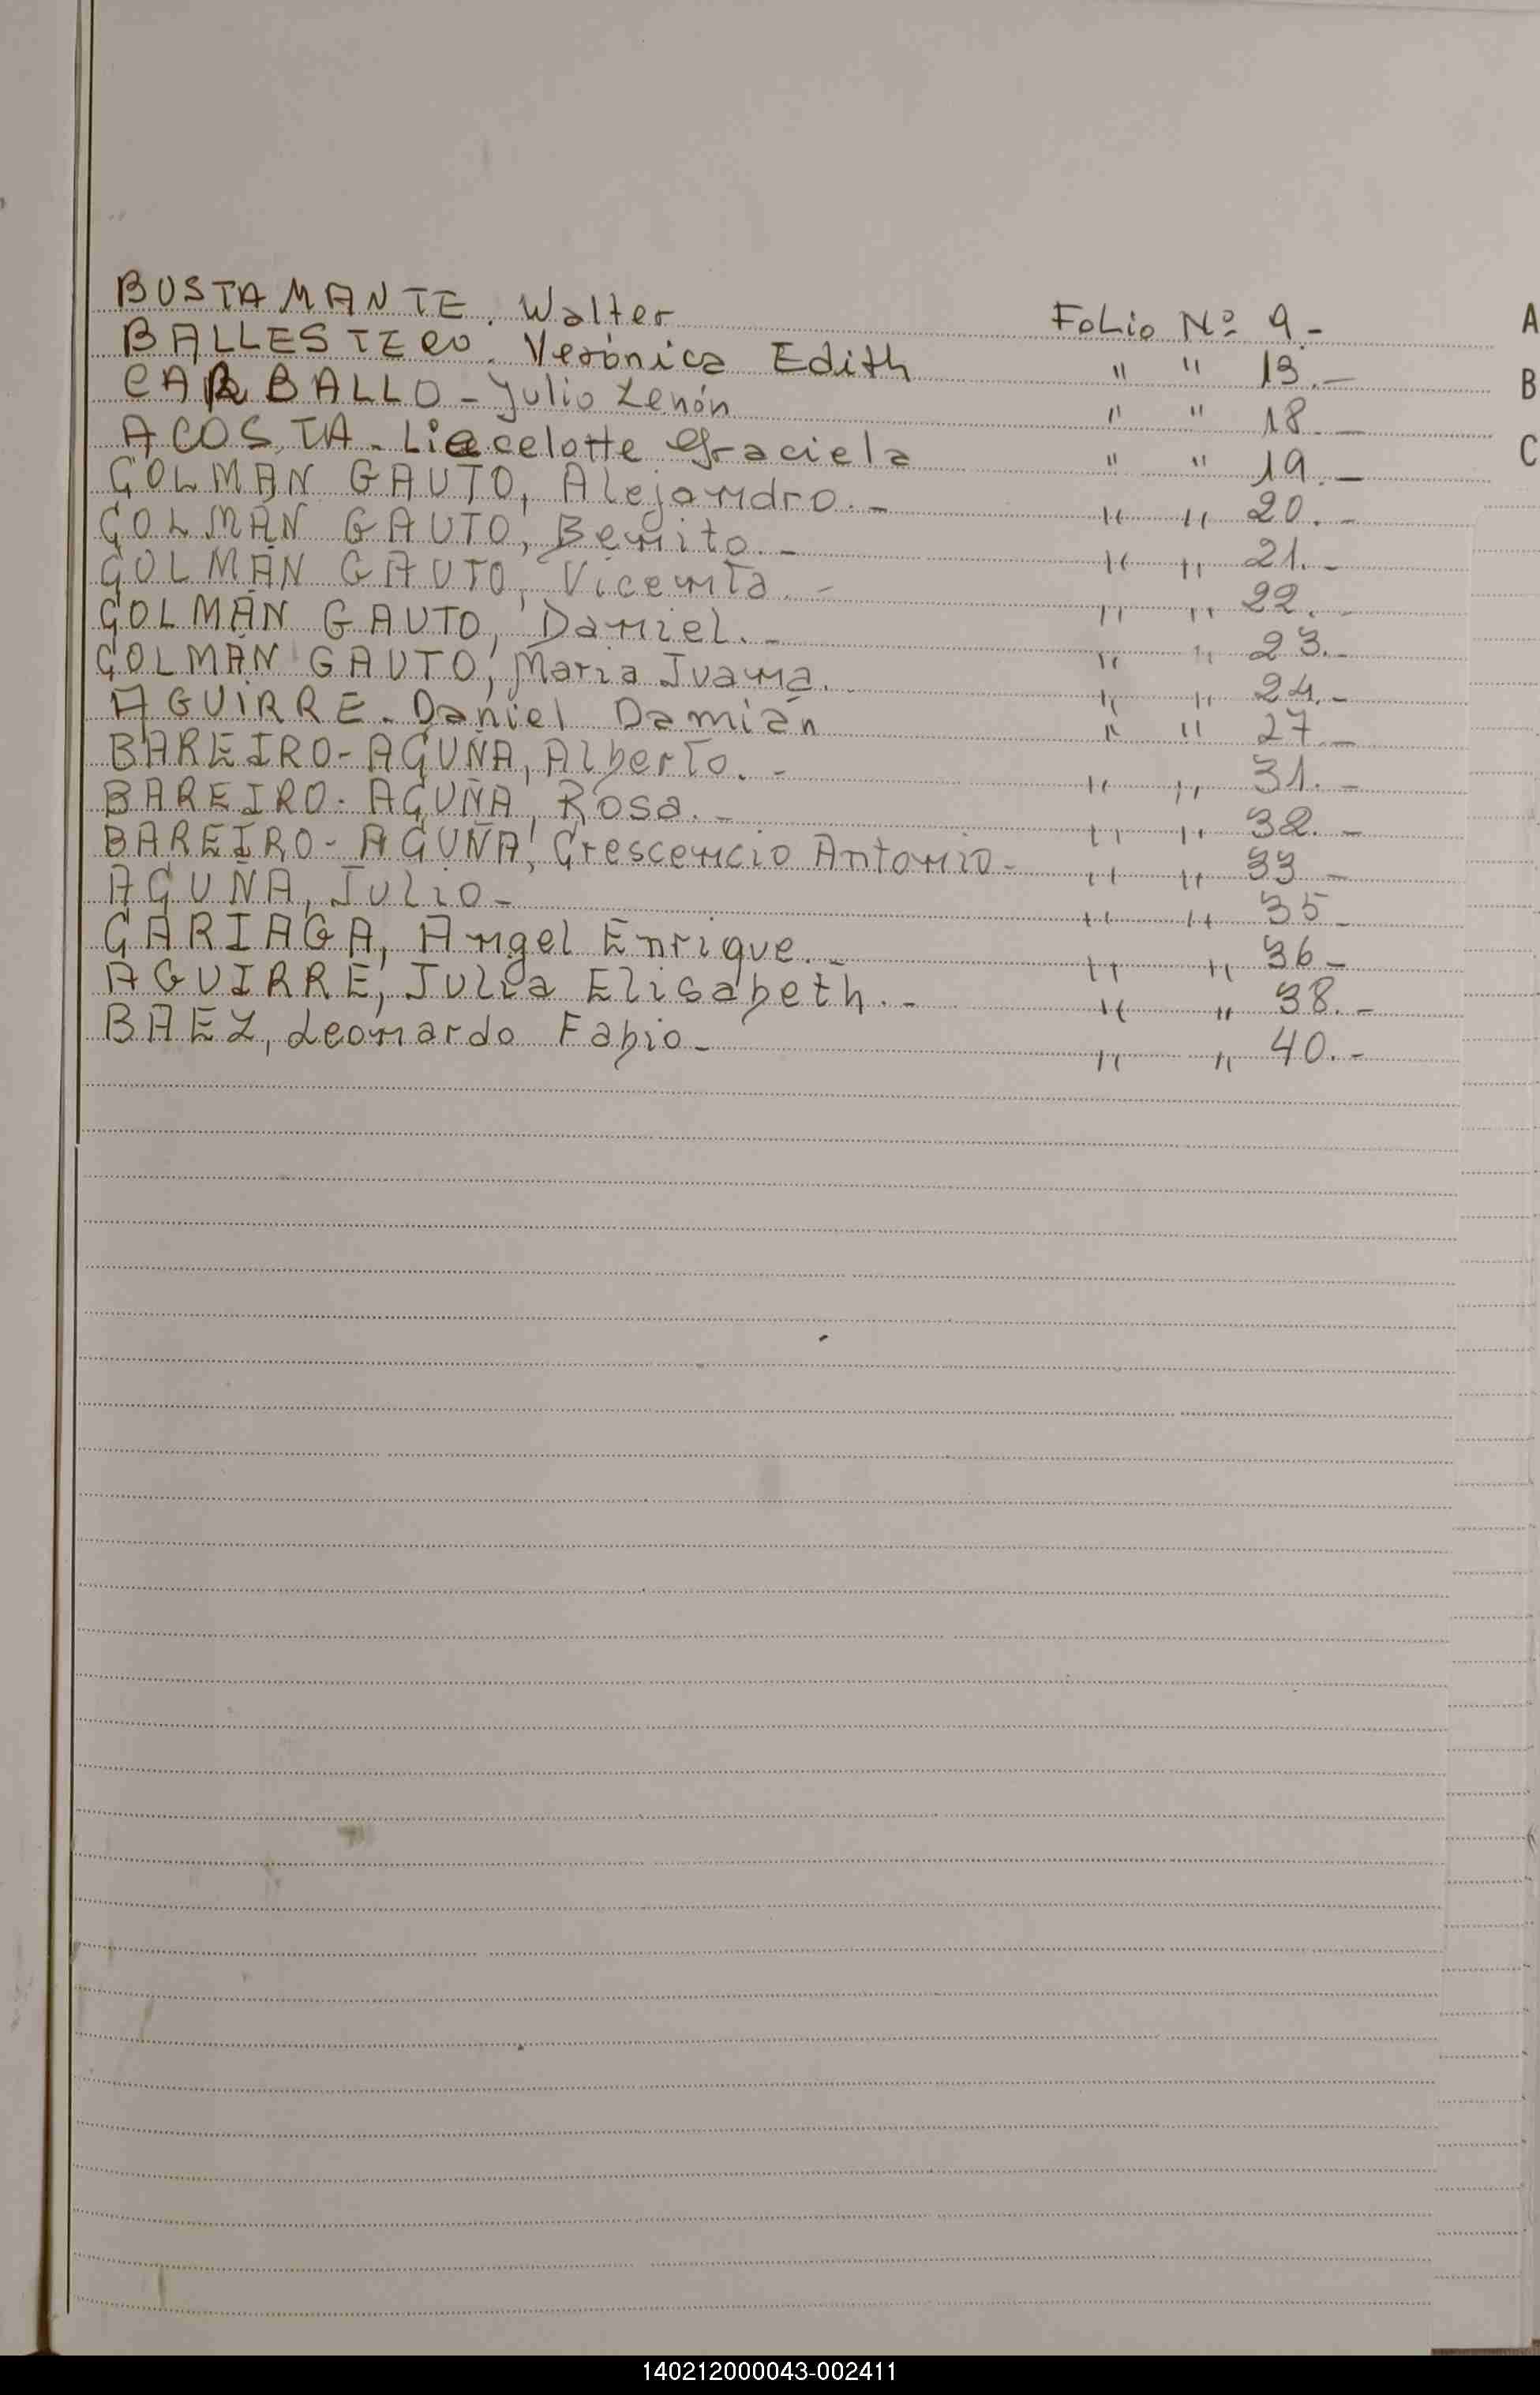 BUSTAMANTE. Walter Folio Nº 9.-
BALLESTERO. Verónica Edith " " 13.-
CARBALLO - Julio Zenón " " 18.-
ACOSTA - Liecelotte Graciela " " 19.-
COLMAN GAUTO, Alejandro.- " " 20.-
COLMÁN GAUTO, Benito.- " " 21.-
COLMÁN GAUTO, Vicenta.- " " 22.-
COLMÁN GAUTO, Daniel.- " " 23.-
COLMÁN GAUTO, Maria Juana. " " 24.-
AGUIRRE - Daniel Damián " " 27.-
BAREIRO-ACUÑA, Alberto.- " " 31.-
BAREIRO-ACUÑA, Rosa.- " " 32.-
BAREIRO-ACUÑA, Crescencio Antonio- " " 33 -
ACUÑA, Julio- " " 35-
CARIAGA, Angel Enrique.- " " 36-
AGUIRRE, Julia Elisabeth.- " " 38.-
BAEZ, Leonardo Fabio- " " 40.-
A
B
C
140212000043-002411